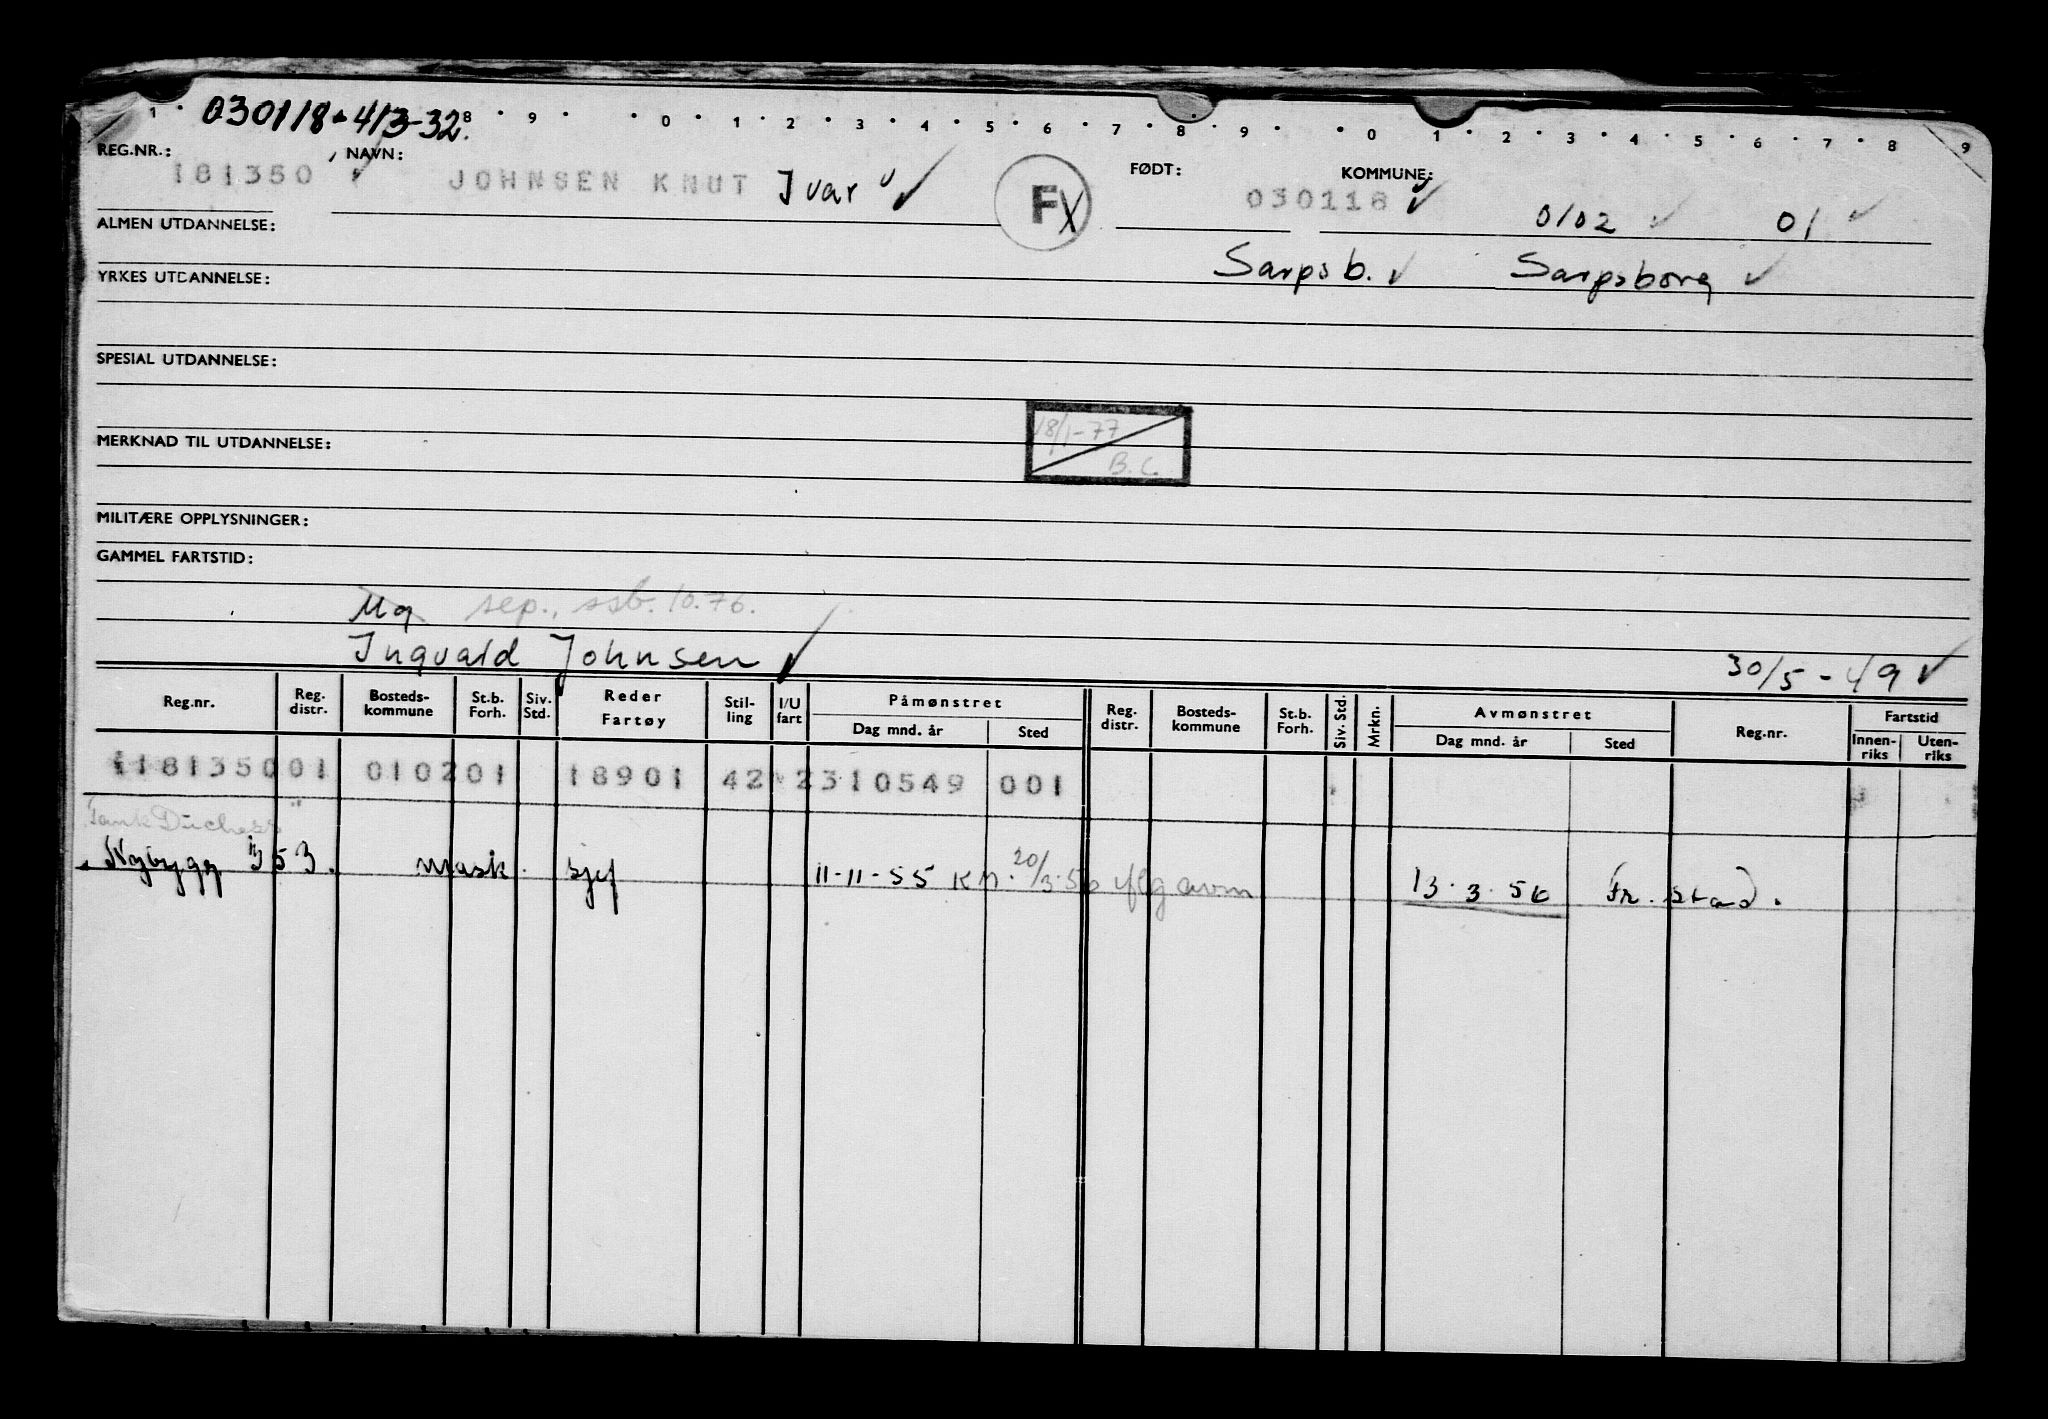 030118-413-32.
1 · 8 · 9 · · 0 · 1 · 2 · 3 · 4 · 5 · 6 · 7 · 8 · 9 · · 0 · 1 · 2 · 3 · 4 · 5 · 6 · 7 · 8 · 9
REG.NR.: NAVN: FØDT: KOMMUNE:
181350 JOHNSEN KNUT Ivar Fx 030118 0102 01
ALMEN UTDANNELSE:
Sarpsb. Sarpsborg
YRKES UTDANNELSE:
SPESIAL UTDANNELSE:
18/1-77
B.C.
MERKNAD TIL UTDANNELSE:
MILITÆRE OPPLYSNINGER:
GAMMEL FARTSTID:
Ug sep., ssb. 10.76.
Ingvald Johnsen 30/5-49
Reg.nr. Reg. distr. Bosteds- kommune St.b. Forh. Siv. Std. Reder Fartøy Stil- ling I/U fart Påmønstret Dag mnd. år Sted Reg. distr. Bosteds- kommune St.b. Forh. Siv. Std. Mrkn. Avmønstret Dag mnd. år Sted Reg.nr. Fartstid Innen- riks Uten- riks
118135001 010201 18901 42 2310549 001
Tank Duchess"
Nybygg 353. mask. sjef 11-11-55 KM. 20/3.56 iflg avm 13.3.56 Fr.stad.